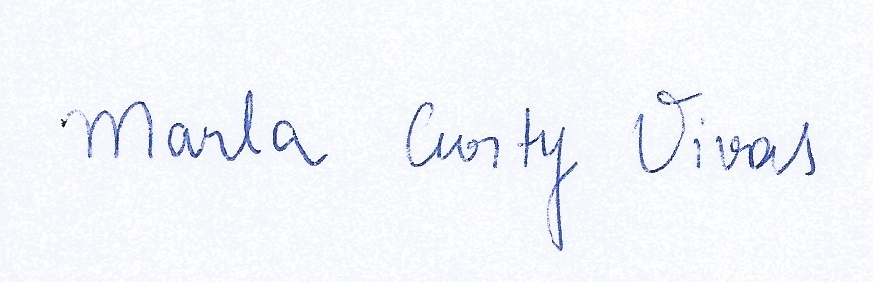 Marla Crosty Vivas